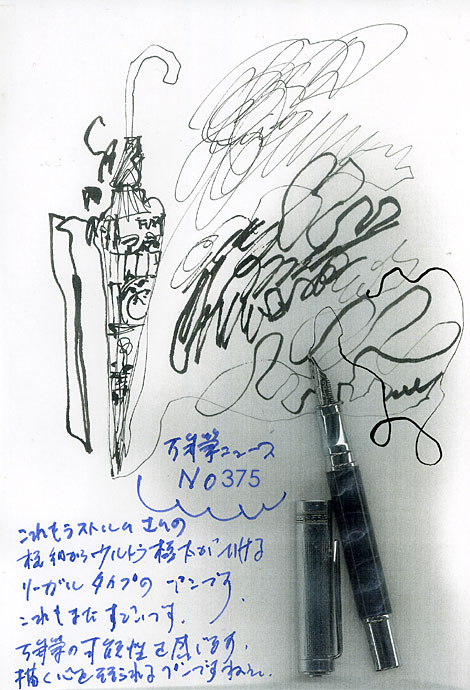 万年筆ニュース
No375
これもラストルム さんの
極細からウルトラ極太が 書ける
リーガル タイプの ペンです
これもまた すごいです.
万年筆の可能性を感じます.
描く心をそそられるペンですねえ.